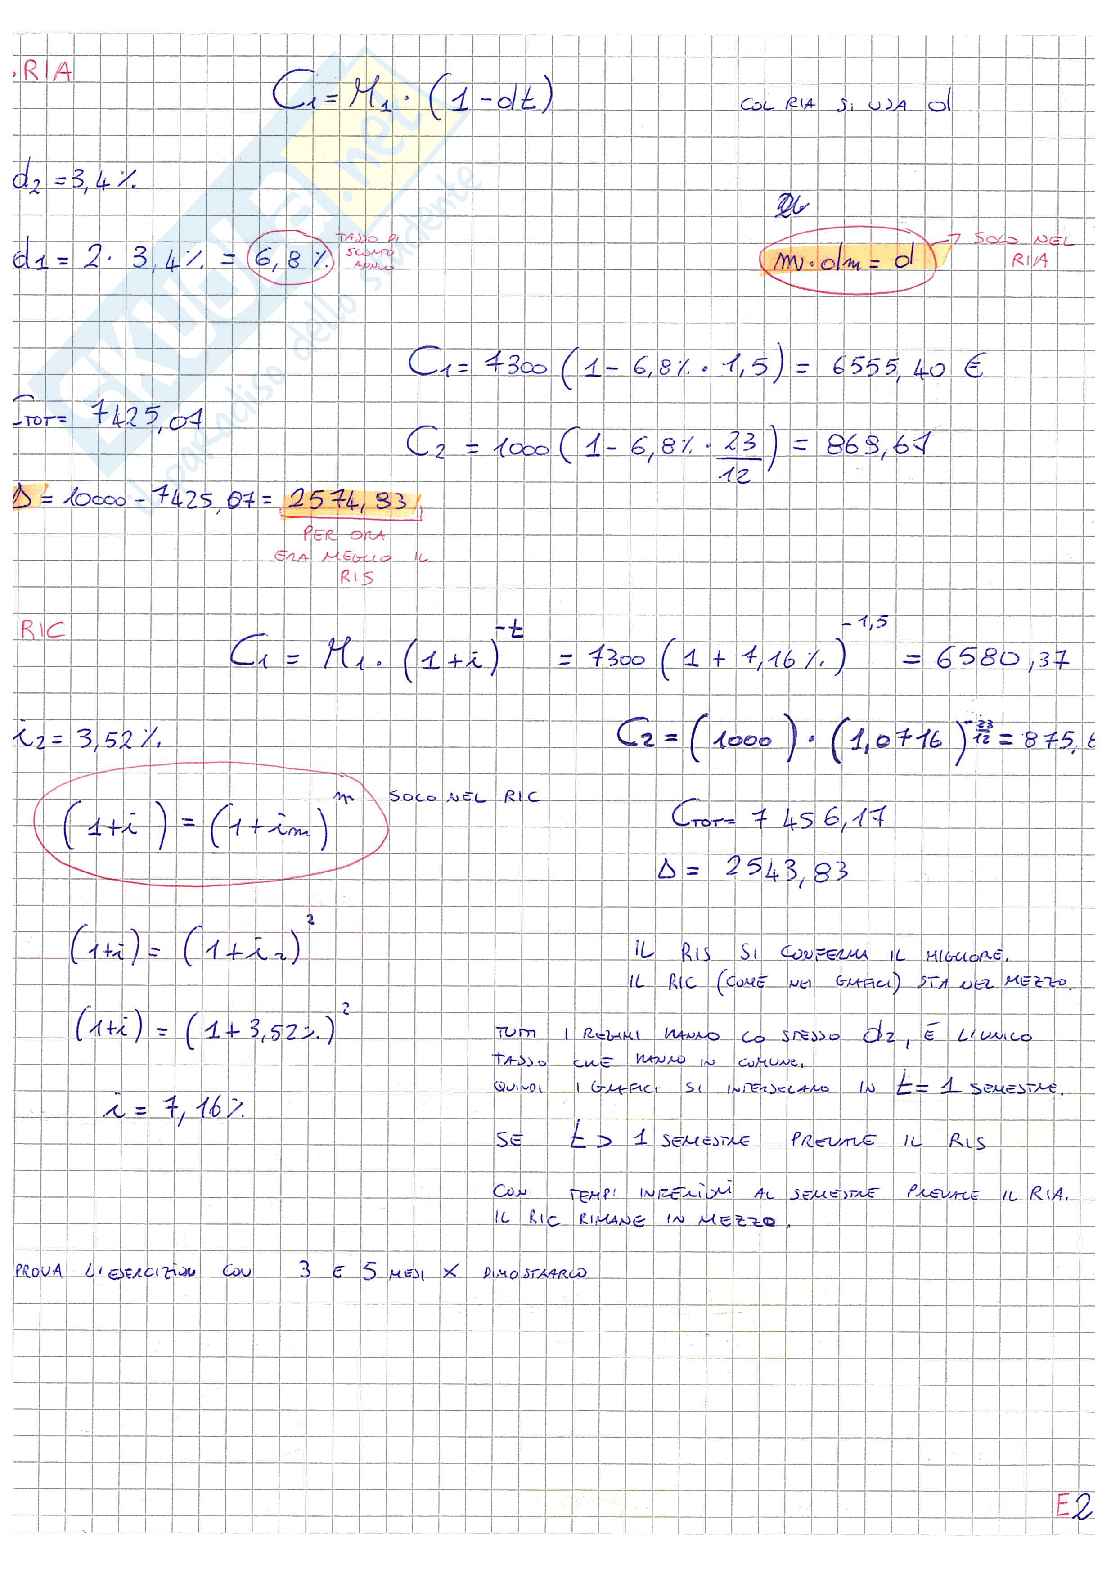 .RIA
C1 = M1 · (1 - dt)
COL RIA SI USA d
d2 = 3,4%
d1 = 2 · 3,4% = 6,8%
TASSO DI
SCONTO
ANNUO
m · dm = d
SOLO NEL
RIA
C1 = 7300 (1 - 6,8% · 1,5) = 6555,40 €
CTOT = 7425,07
C2 = 1000 (1 - 6,8% · 23/12) = 869,67
Δ = 10000 - 7425,07 = 2574,93
PER ORA
ERA MEGLIO IL
RIS
RIC
C1 = M1 · (1+i)^-t = 7300 (1 + 7,16%)^-1,5 = 6580,37
i2 = 3,52%.
C2 = (1000) · (1,0716)^-23/12 = 875,
(1+i) = (1+im)^m
SOLO NEL RIC
CTOT = 7456,17
Δ = 2543,83
(1+i) = (1+i2)^2
IL RIS SI CONFERMA IL MIGLIORE.
IL RIC (COME NEI GRAFICI) STA NEL MEZZO.
(1+i) = (1+3,52%)^2
TUTTI I REGIMI HANNO LO STESSO d2, È L'UNICO
TASSO CHE HANNO IN COMUNE.
QUINDI I GRAFICI SI INTERSECANO IN t = 1 SEMESTRE.
i = 7,16%
SE t > 1 SEMESTRE PREVALE IL RIS
CON TEMPI INFERIORI AL SEMESTRE PREVALE IL RIA.
IL RIC RIMANE IN MEZZO.
PROVA L'ESERCIZIO CON 3 E 5 MESI X DIMOSTRARLO
E2
skuola.net
il paradiso dello studente